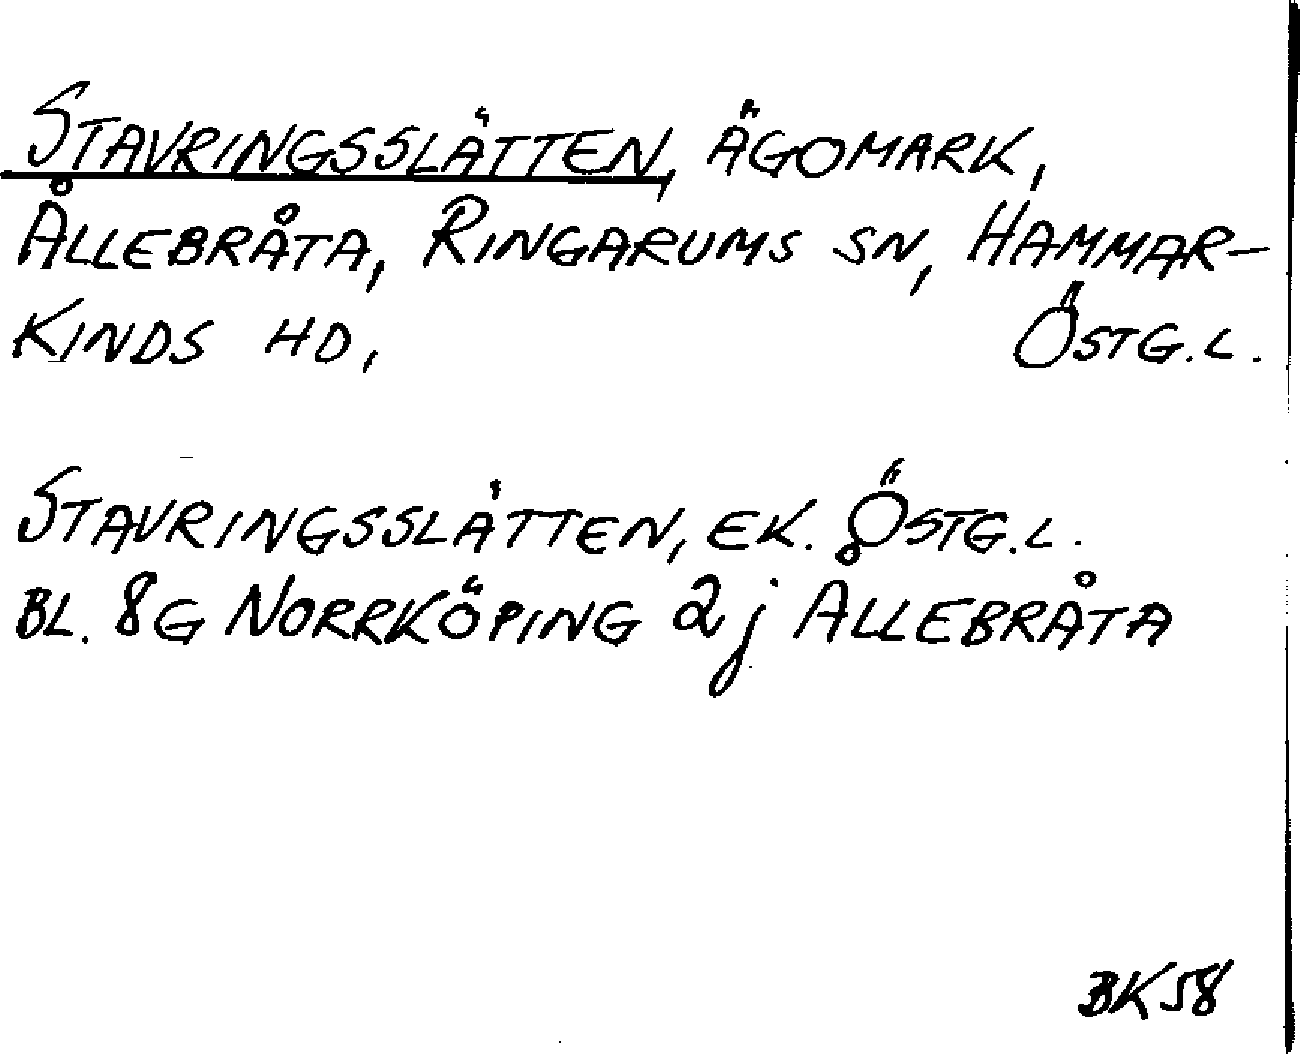 STAVRINGSSLÄTTEN, ÄGOMARK,
ÅLLEBRÅTA, RINGARUMS SN, HAMMAR-
KINDS HD, ÖSTG.L.
STAVRINGSSLÄTTEN, EK. ÖSTG.L.
BL. 8G NORRKÖPING 2j ÅLLEBRÅTA
BK58